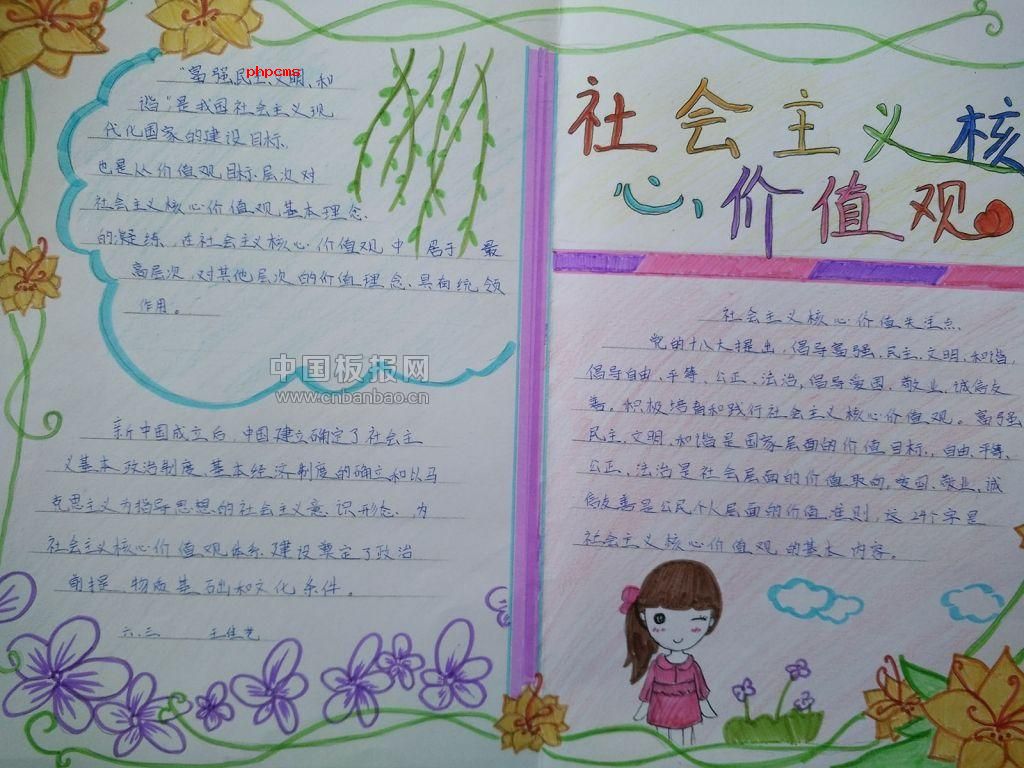 "富强民主文明,和
phpcms
谐"是我国社会主义现
代化国家的建设目标,
也是从价值观目标层次对
社会主义核心价值观基本理念
的凝练,在社会主义核心价值观中居于最
高层次,对其他层次的价值理念具有统领
作用。
中国板报网
www.cnbanbao.cn
新中国成立后,中国建立确定了社会主
义基本政治制度、基本经济制度的确立和以马
克思主义为指导思想的社会主义意识形态,为
社会主义核心价值观体系建设奠定了政治
前提、物质基础和文化条件。
六.三 王佳艺
社会主义核
心价值观
社会主义核心价值关注点
党的十八大提出,倡导富强、民主、文明、和谐,
倡导自由、平等、公正、法治,倡导爱国、敬业、诚信友
善。积极培育和践行社会主义核心价值观。富强
民主、文明、和谐是国家层面的价值目标,自由、平等、
公正、法治是社会层面的价值取向,爱国、敬业、诚
信友善是公民个人层面的价值准则,这24个字是
社会主义核心价值观的基本内容。